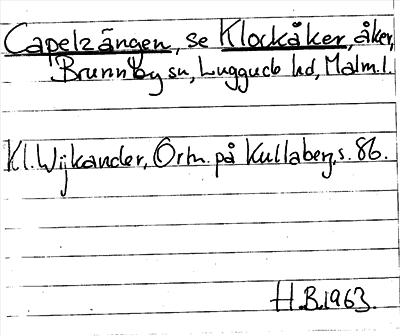 Capelzängen, se Klockåker, åker,
Brunnby sn, Luggude hd, Malm.l.
Kl. Wijkander, Ortn. på Kullaberg, s. 86.
H.B. 1963.